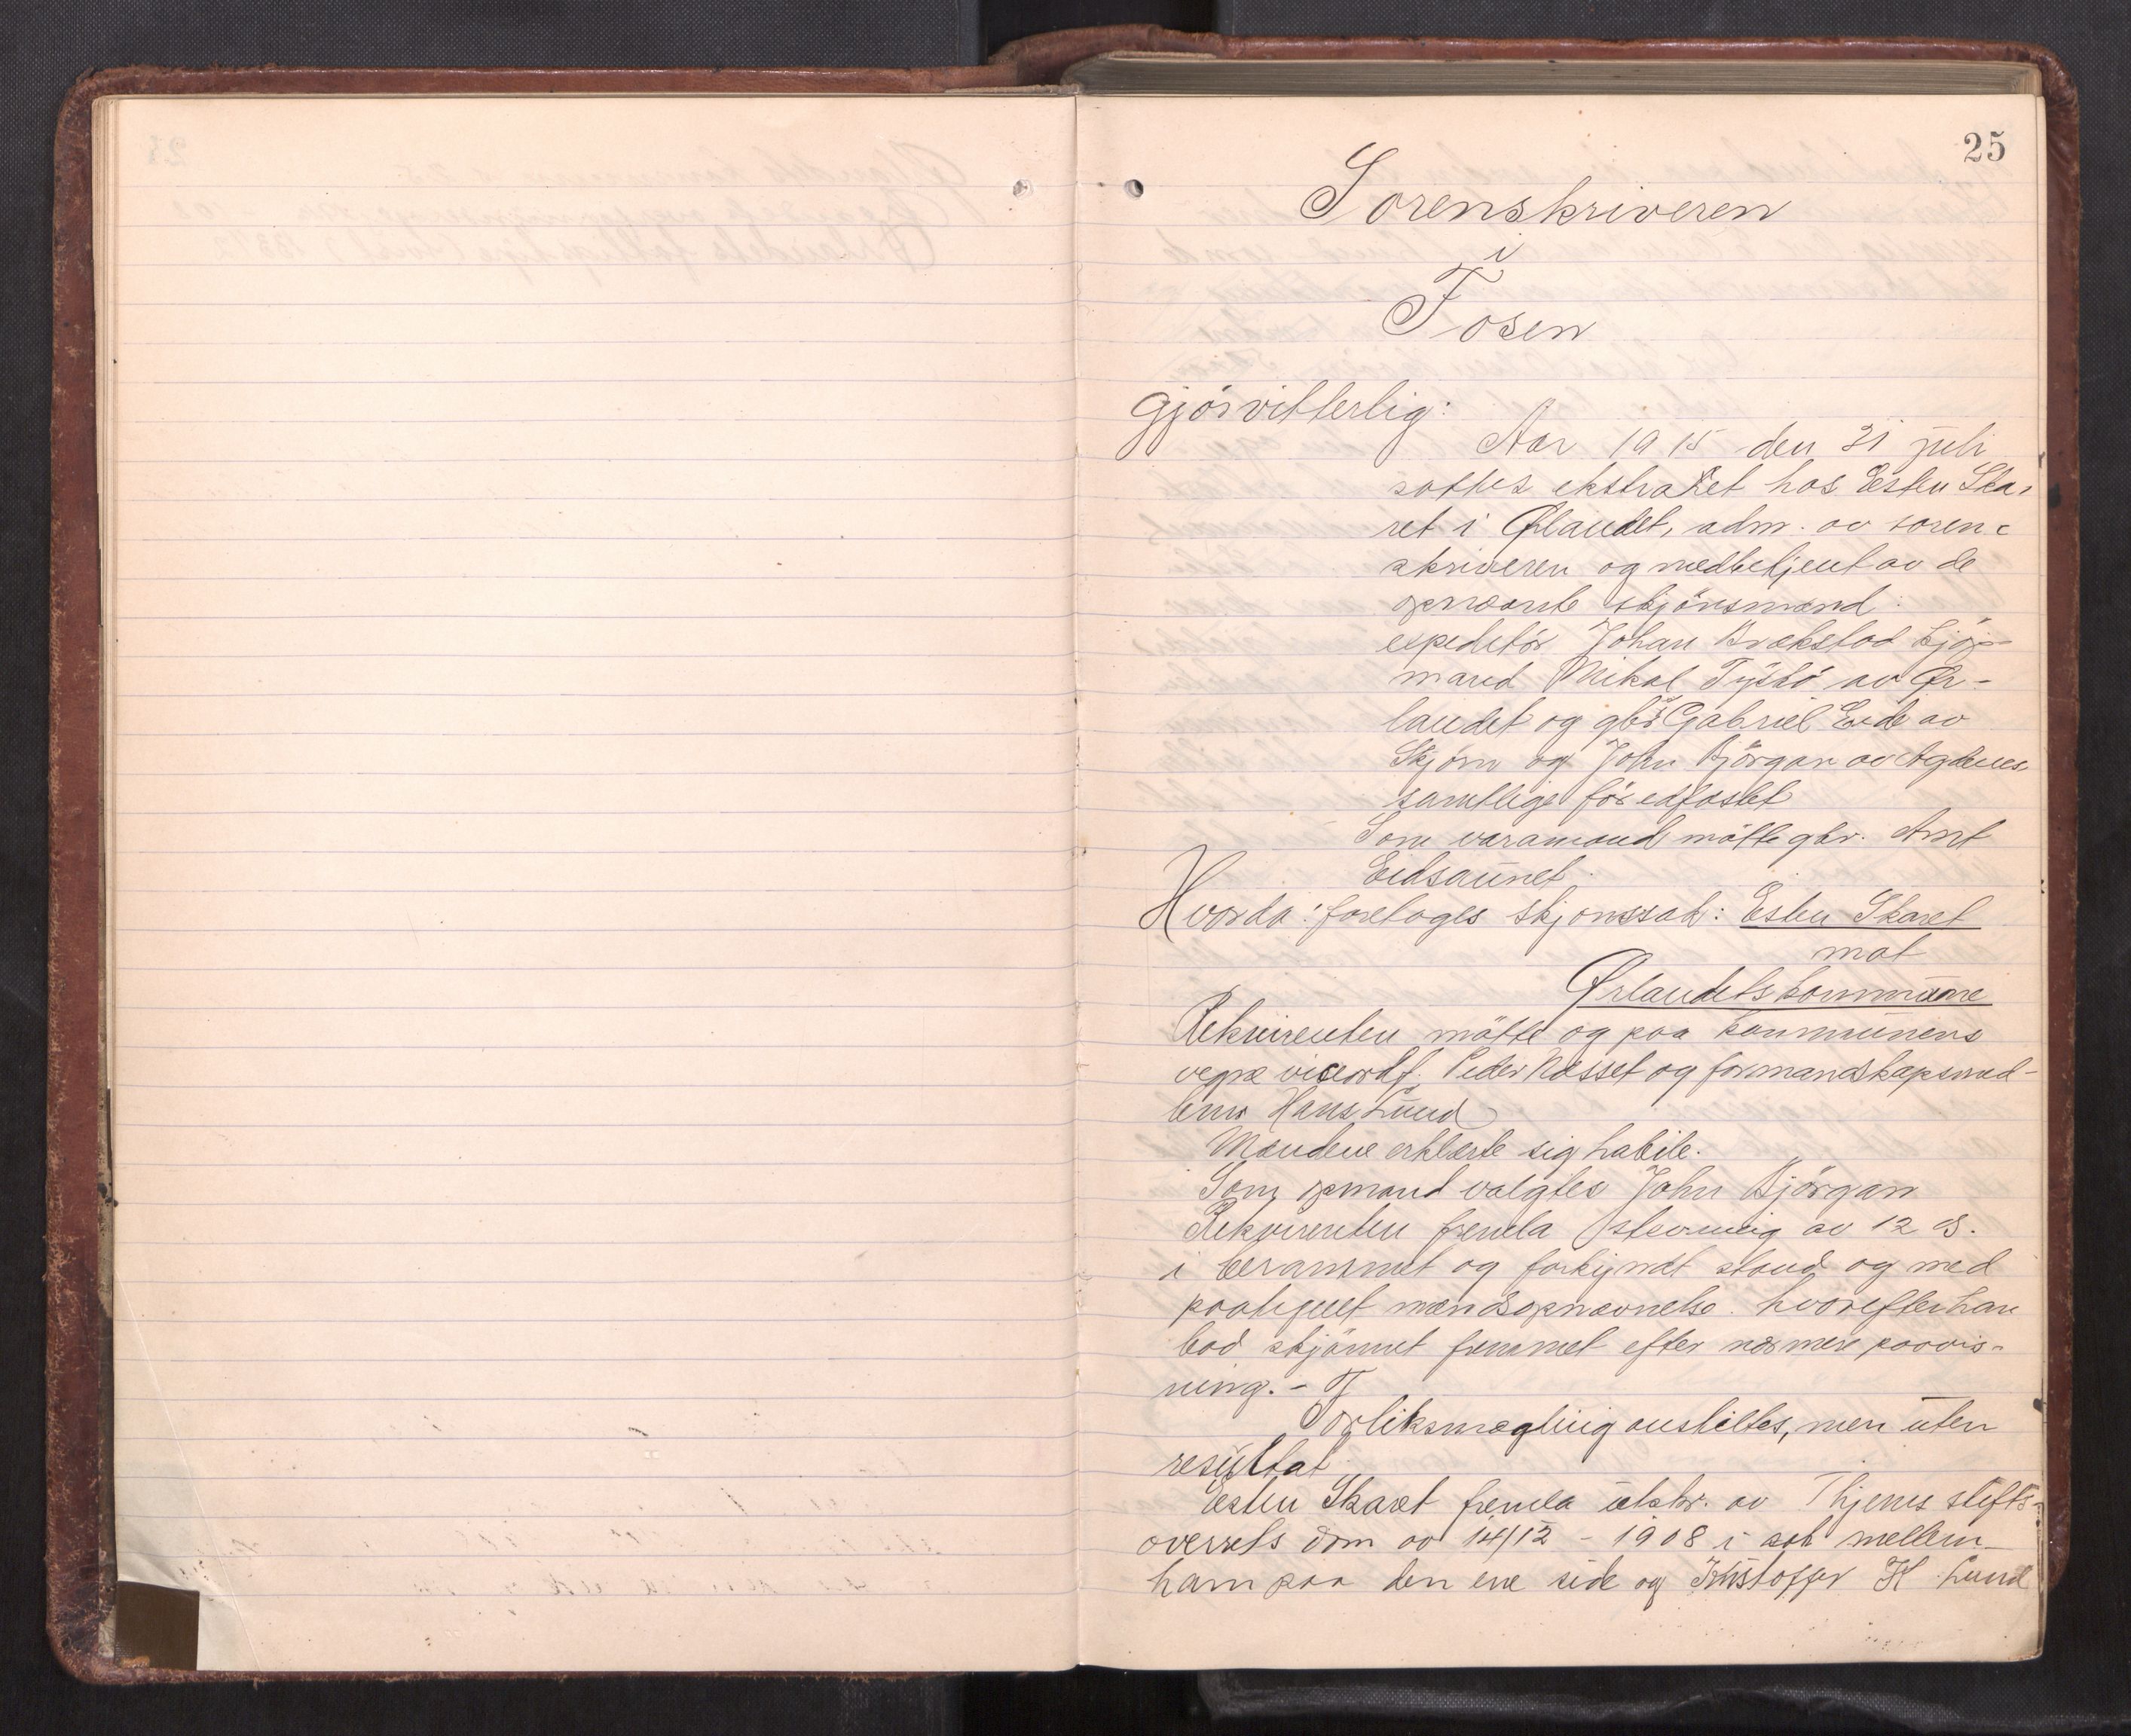 25
Sorenskriveren
i
Fosen
gjör vitterlig:
Aar 1915 den 31 juli
sattes ekstraret hos Esten Ska-
ret i Ørlandet, adm. av soren-
skriveren og medbetjent av de
opnævnte skjönsmænd:
expeditör Johan Brækstad kjöp-
mand Mikal Tyskö av Ør-
landet og gbr Gabriel Eide av
Skjörn og John Björgan av Agdenes
samtlige för edfæstet
Som varamand mötte gbr. Arnt
Eidsaunet.
Hvorda: foretoges skjönssak: Esten Skaret
mot
Ørlandets kommune
Rekvirenten mötte og paa kommunens
vegne viceordf. Peder Næsset og formandskapsmed-
lem Hans Lund
Mændene erklærte sig habile.
Som opmand valgtes John Björgan
Rekvirenten fremla stevning av 12 ds.
i berammet og forkyndt stand og med
paategnet mændsopnævnelse. hvorefter han
bad skjönnet fremmet efter nærmere paavis-
ning. -
Forliksmægling anstilltes, men uten
resultat
Esten Skaret fremla utskr. av Thjems stifts-
overrets dom av 14/12 - 1908 i sak mellem
ham paa den ene side og Kristoffer K Lund